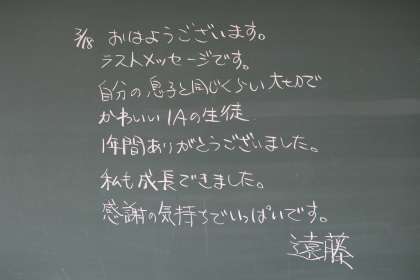 3/18 おはようございます。
ラストメッセージです。
自分の息子と同じくらい大切で
かわいい1Aの生徒
1年間ありがとうございました。
私も成長できました。
感謝の気持ちでいっぱいです。
遠藤